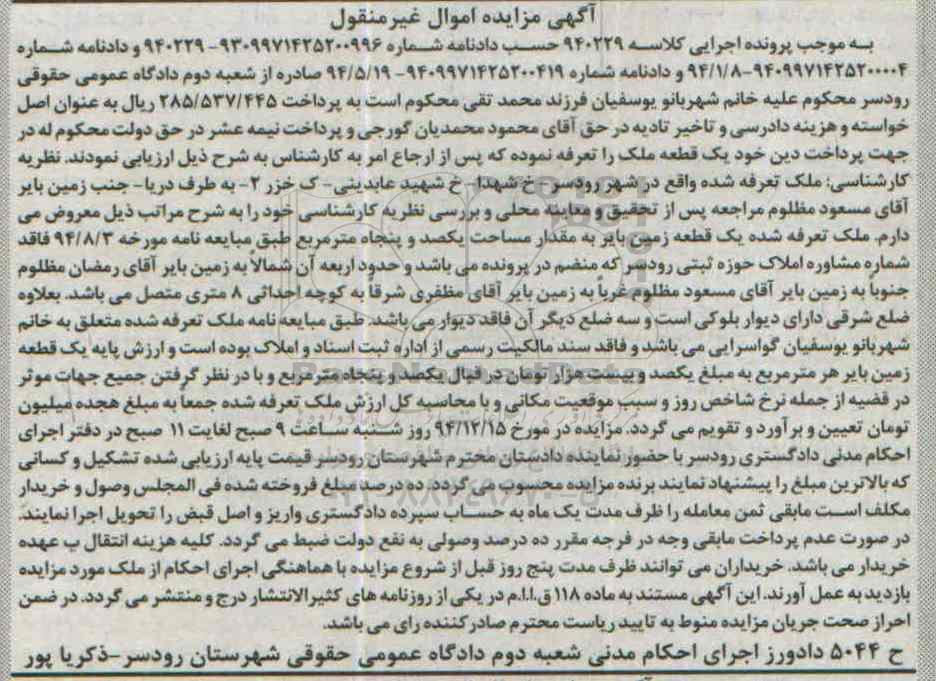 آگهی مزایده اموال غیرمنقول
به موجب پرونده اجرایی کلاسه ۹۴۰۲۲۹ حسب دادنامه شماره ۹۳۰۹۹۷۱۴۲۵۲۰۰۹۹۶- ۹۴۰۲۲۹ و دادنامه شماره
۹۴۰۹۹۷۱۴۲۵۲۰۰۰۰۴-۹۴/۱/۸ و دادنامه شماره ۹۴۰۹۹۷۱۴۲۵۲۰۰۴۱۹- ۹۴/۵/۱۹ صادره از شعبه دوم دادگاه عمومی حقوقی
رودسر محکوم علیه خانم شهربانو یوسفیان فرزند محمد تقی محکوم است به پرداخت ۲۸۵/۵۳۷/۴۴۵ ریال به عنوان اصل
خواسته و هزینه دادرسی و تاخیر تادیه در حق آقای محمود محمدیان گورجی و پرداخت نیمه عشر در حق دولت محکوم له در
جهت پرداخت دین خود یک قطعه ملک را تعرفه نموده که پس از ارجاع امر به کارشناس به شرح ذیل ارزیابی نمودند. نظریه
کارشناسی: ملک تعرفه شده واقع در شهر رودسر - خ شهدا- خ شهید عابدینی- ک خزر ۲- به طرف دریا- جنب زمین بایر
آقای مسعود مظلوم مراجعه پس از تحقیق و معاینه محلی و بررسی نظریه کارشناسی خود را به شرح مراتب ذیل معروض می
دارم. ملک تعرفه شده یک قطعه زمین بایر به مقدار مساحت یکصد و پنجاه مترمربع طبق مبایعه نامه مورخه ۹۴/۸/۳ فاقد
شماره مشاوره املاک حوزه ثبتی رودسر که منضم در پرونده می باشد و حدود اربعه آن شمالاً به زمین بایر آقای رمضان مظلوم
جنوباً به زمین بایر آقای مسعود مظلوم غرباً به زمین بایر آقای مظفری شرقاً به کوچه احداثی ۸ متری متصل می باشد. بعلاوه
ضلع شرقی دارای دیوار بلوکی است و سه ضلع دیگر آن فاقد دیوار می باشد. طبق مبایعه نامه ملک تعرفه شده متعلق به خانم
شهربانو یوسفیان گواسرایی می باشد و فاقد سند مالکیت رسمی از اداره ثبت اسناد و املاک بوده است و ارزش پایه یک قطعه
زمین بایر هر مترمربع به مبلغ یکصد و بیست هزار تومان در قبال یکصد و پنجاه مترمربع و با در نظر گرفتن جمیع جهات موثر
در قضیه از جمله نرخ شاخص روز و سبب موقعیت مکانی و با محاسبه کل ارزش ملک تعرفه شده جمعاً به مبلغ هجده میلیون
تومان تعیین و برآورد و تقویم می گردد. مزایده در مورخ ۹۴/۱۲/۱۵ روز شنبه ساعت ۹ صبح لغایت ۱۱ صبح در دفتر اجرای
احکام مدنی دادگستری رودسر با حضور نماینده دادستان محترم شهرستان رودسر قیمت پایه ارزیابی شده تشکیل و کسانی
که بالاترین مبلغ را پیشنهاد نمایند برنده مزایده محسوب می گردد ده درصد مبلغ فروخته شده فی المجلس وصول و خریدار
مکلف است مابقی ثمن معامله را ظرف مدت یک ماه به حساب سپرده دادگستری واریز و اصل قبض را تحویل اجرا نمایند.
در صورت عدم پرداخت مابقی وجه در فرجه مقرر ده درصد وصولی به نفع دولت ضبط می گردد. کلیه هزینه انتقال ب عهده
خریدار می باشد. خریداران می توانند ظرف مدت پنج روز قبل از شروع مزایده با هماهنگی اجرای احکام از ملک مورد مزایده
بازدید به عمل آورند. این آگهی مستند به ماده ۱۱۸ ق.ا.ا.م در یکی از روزنامه های کثیرالانتشار درج و منتشر می گردد. در ضمن
احراز صحت جریان مزایده منوط به تایید ریاست محترم صادرکننده رای می باشد.
ح ۵۰۴۴ دادورز اجرای احکام مدنی شعبه دوم دادگاه عمومی حقوقی شهرستان رودسر-ذکریا پور